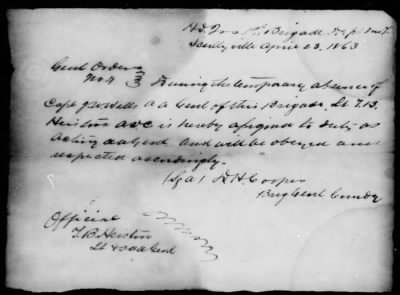 Hd Qrs 1st Brigade
Scullyville April 23, 1863
Genl Orders
No 4 During the temporary absence of
Capt J W Wells a a Genl of this Brigade, Lt T.B.
Heiston adc is hereby assigned to duty as
acting a a Genl and will be obeyed and
respected accordingly.
D.H. Cooper
Brig Genl Comdg
Official
T.B. Heiston
Lt & a a a Genl